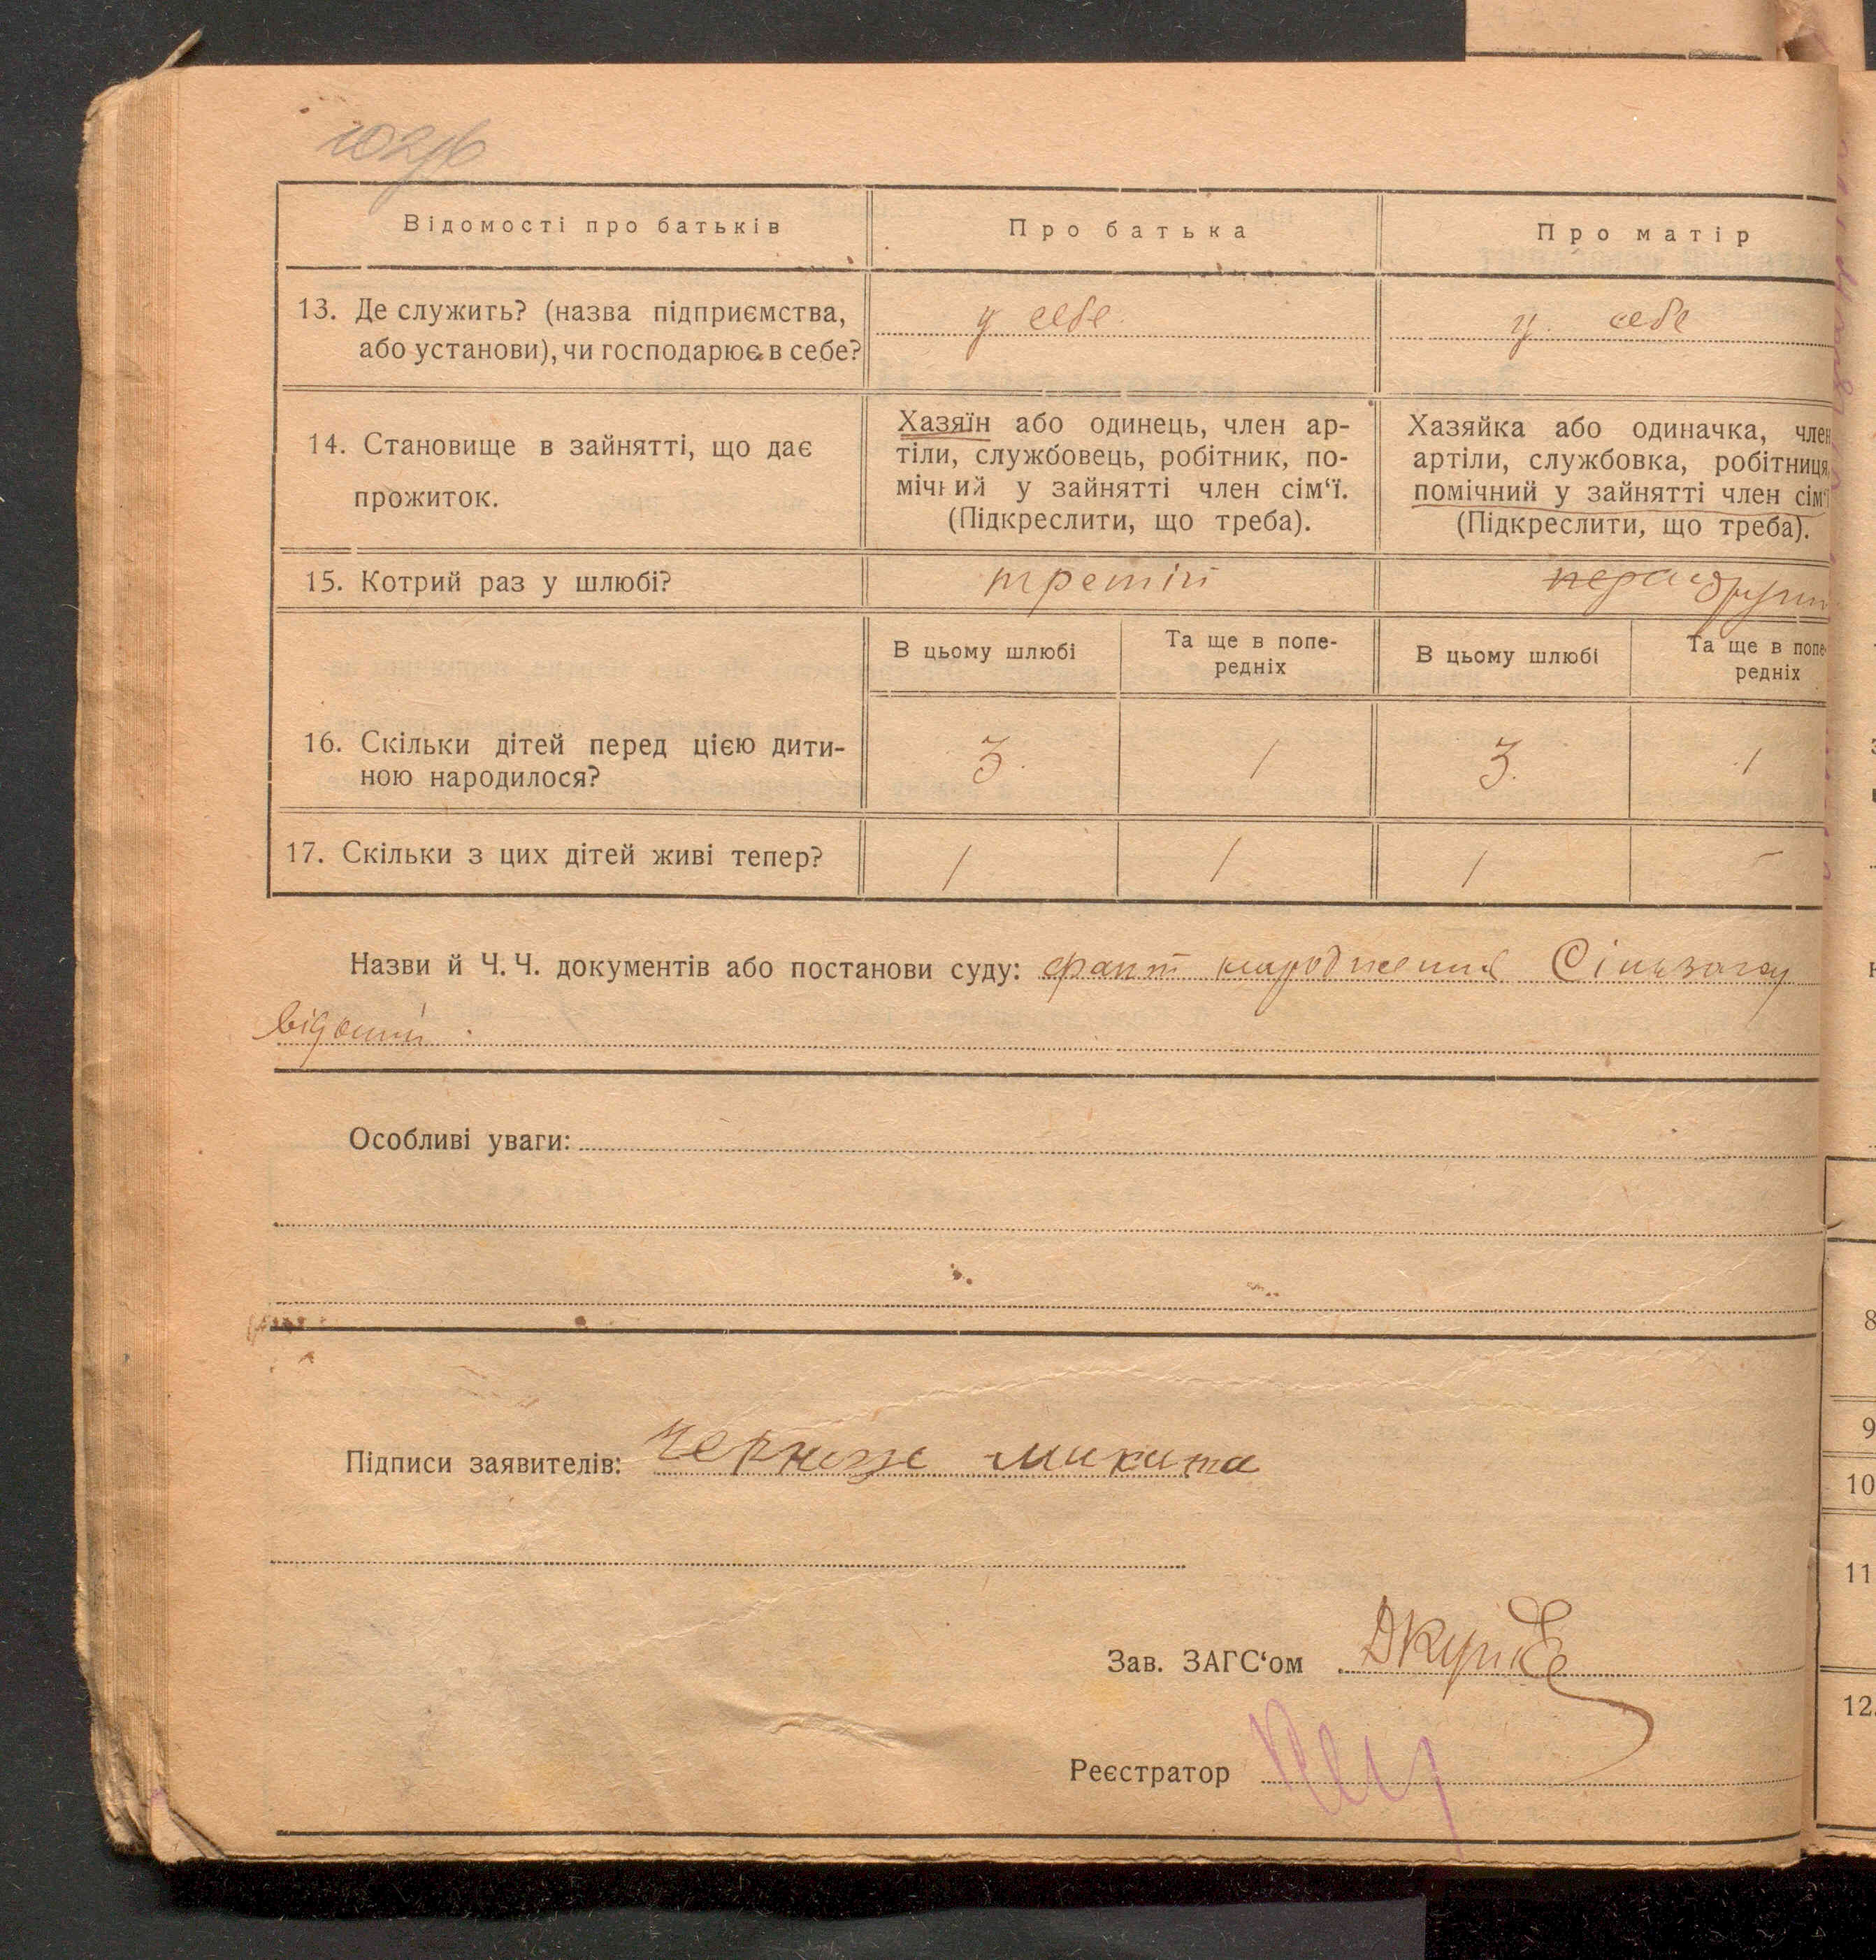 Відомості про батьків
Про батька
Про матір
13. Де служить? (назва підприємства,
або установи), чи господарює в себе?
у себе
у себе
14. Становище в зайнятті, що дає
прожиток.
Хазяїн або одинець, член ар-
тіли, службовець, робітник, по-
мічний у зайнятті член сім‘ї.
(Підкреслити, що треба).
Хазяйка або одиначка, член
артіли, службовка, робітниця,
помічний у зайнятті член сім‘ї
(Підкреслити, що треба).
15. Котрий раз у шлюбі?
третій
В цьому шлюбі
Та ще в попе-
редніх
В цьому шлюбі
Та ще в попе-
редніх
16. Скільки дітей перед цією дити-
ною народилося?
3
1
3
1
17. Скільки з цих дітей живі тепер?
1
1
1
–
Назви й Ч. Ч. документів або постанови суду: факт народження Сільзагсу
відомий
Особливі уваги:
Підписи заявителів: Черниш микита
Зав. ЗАГС‘ом
Реєстратор
8
9
10
11
12.